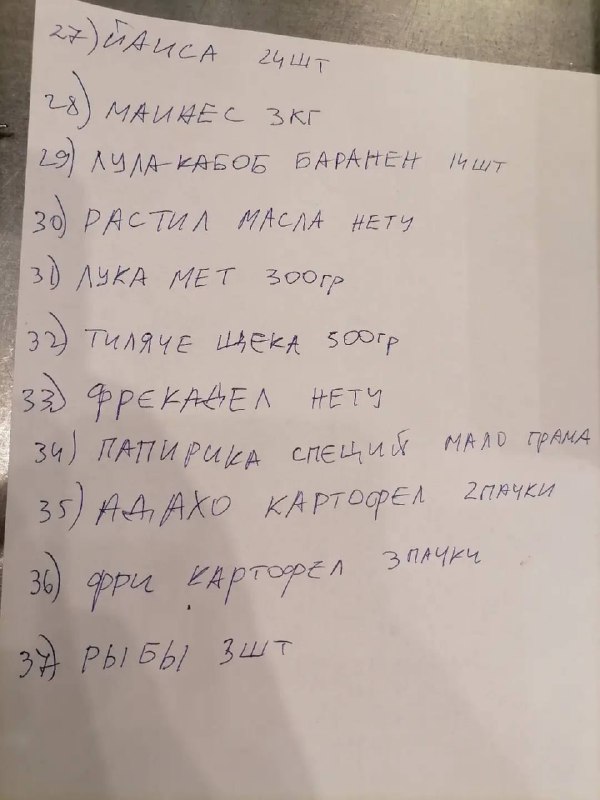 27) ЙАИСА 24ШТ
28) МАИНЕС 3КГ
29) ЛУЛА-КАБОБ БАРАНЕН 14ШТ
30) РАСТИЛ МАСЛА НЕТУ
31) ЛУКА МЕТ 300гр
32) ТИЛЯЧЕ ЩЕКА 500гр
33) ФРЕКАДЕЛ НЕТУ
34) ПАПИРИКА СПЕЦИЙ МАЛО ГРАМА
35) АДАХО КАРТОФЕЛ 2ПАЧКИ
36) ФРИ КАРТОФЕЛ 3ПАЧКИ
37) РЫБЫ 3ШТ